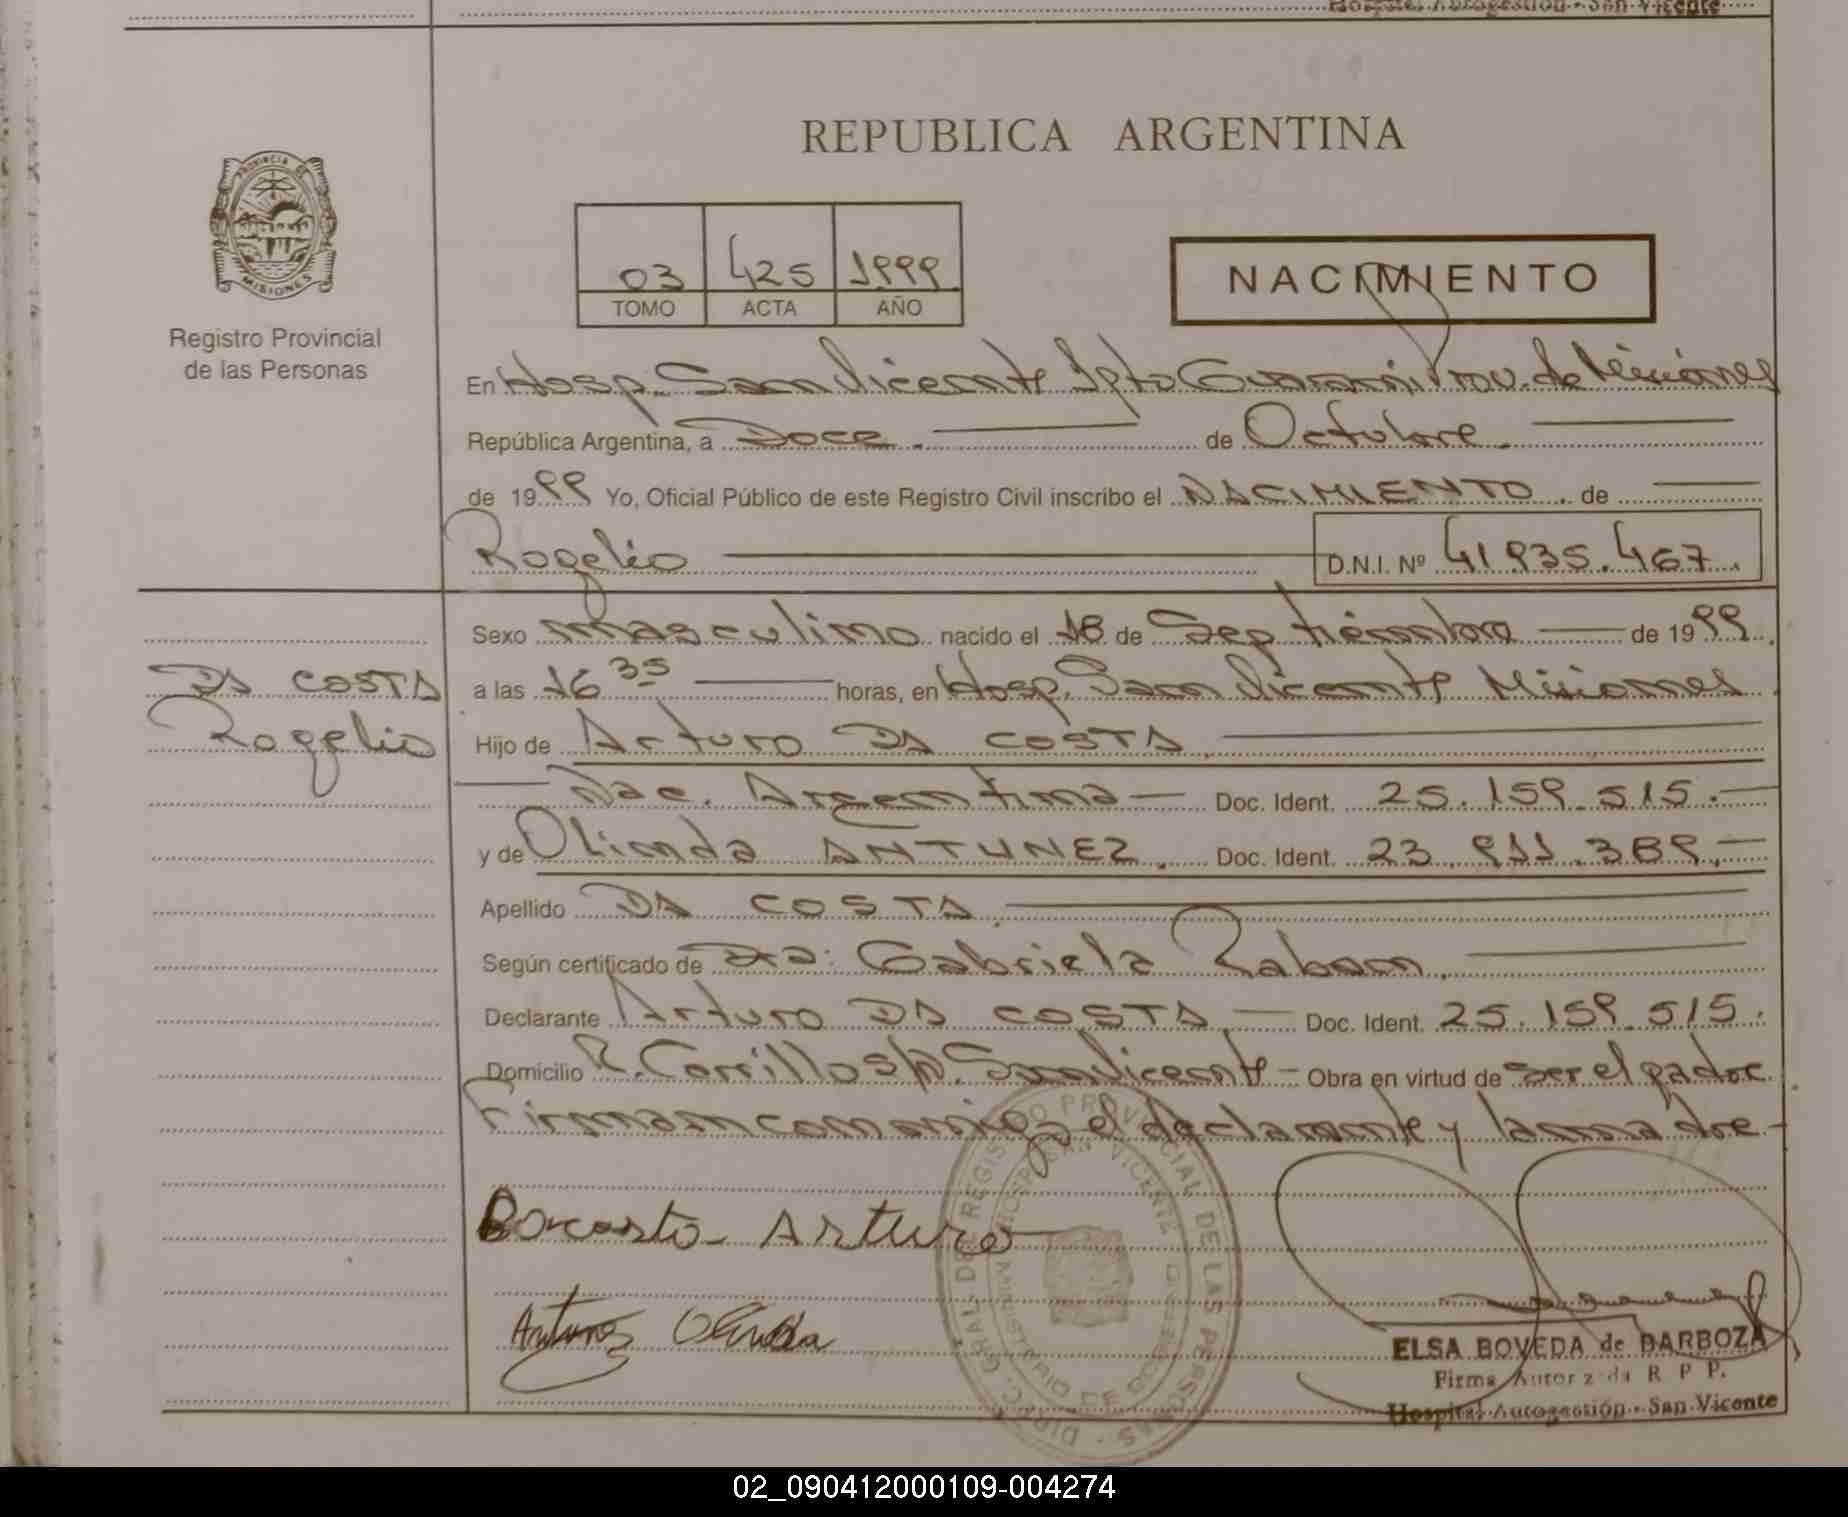 Hospital Autogestión - San Vicente
REPUBLICA ARGENTINA
PROVINCIA DE
MISIONES
Registro Provincial
de las Personas
03 425 1999
TOMO ACTA AÑO
NACIMIENTO
En Hosp. San Vicente Dpto Guaraní Prov. de Misiones
República Argentina, a Doce. de Octubre.
de 1999 Yo, Oficial Público de este Registro Civil inscribo el NACIMIENTO. de
Rogelio D.N.I. Nº 41.935.467.
Sexo masculino nacido el 18 de Septiembre de 1999.
DA COSTA
Rogelio
a las 16 35 horas, en Hosp. San Vicente, Misiones.
Hijo de Arturo DA COSTA.
Nac. Argentina Doc. Ident. 25.159.515.
y de Olinda ANTUNEZ. Doc. Ident. 23.911.389.
Apellido DA COSTA.
Según certificado de Dra: Gabriela Raban.
Declarante Arturo DA COSTA. Doc. Ident. 25.159.515.
Domicilio R. Carrillo s/n. San Vicente - Obra en virtud de ser el padre
Firman conmigo el declarante y la madre-
Dacosta Arturo
Antunez Olinda
DIREC. GRAL. DEL REGISTRO PROVINCIAL DE LAS PERSONAS
HOSP. SAN VICENTE
MINISTERIO DE GOBIERNO
ELSA BOVEDA de BARBOZA
Firma Autorizada R P P.
Hospital Autogestión - San Vicente
02_090412000109-004274